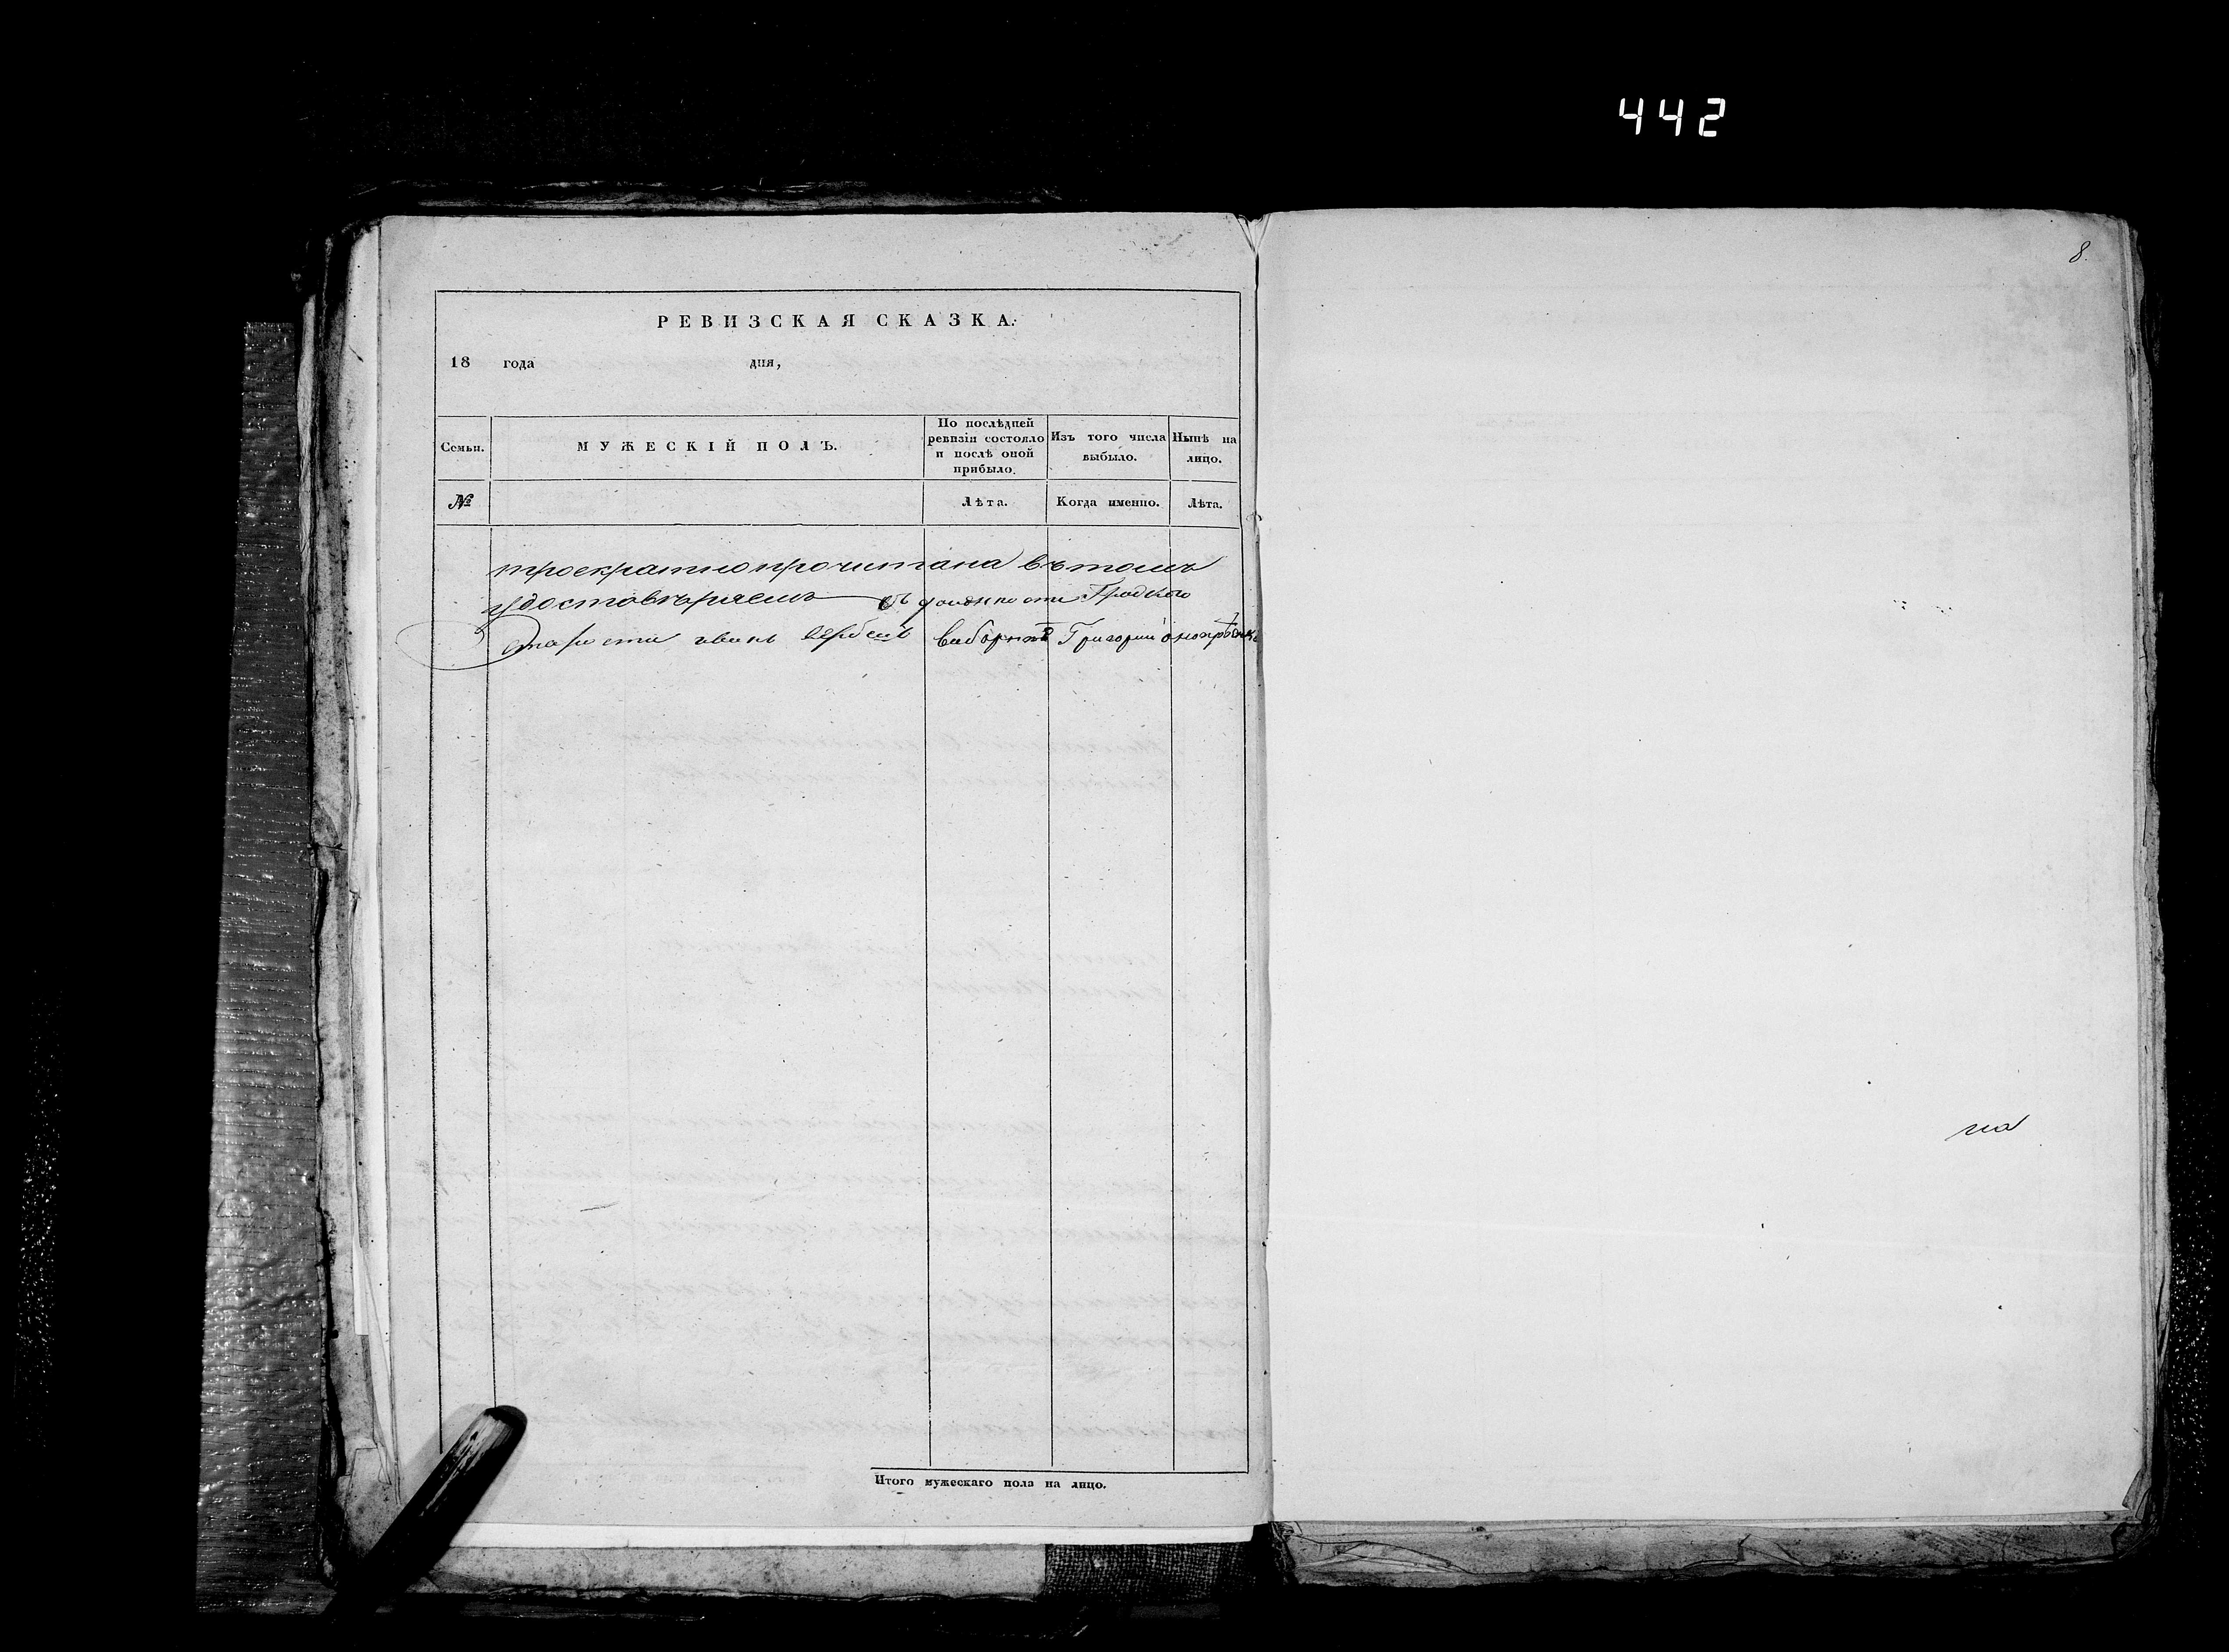 442
8.
РЕВИЗСКАЯ СКАЗКА.
18 года дня,
Семьи. МУЖЕСКІЙ ПОЛЪ. По послѣдней ревизіи состояло и послѣ оной прибыло. Изъ того числа выбыло. Нынѣ на лицо.
№ Лѣта. Когда именно. Лѣта.
троекратно прочитана въ томъ
удостовѣряемъ въ должности Градского
старости иванъ виборний Григорий
на
Итого мужескаго пола на лицо.